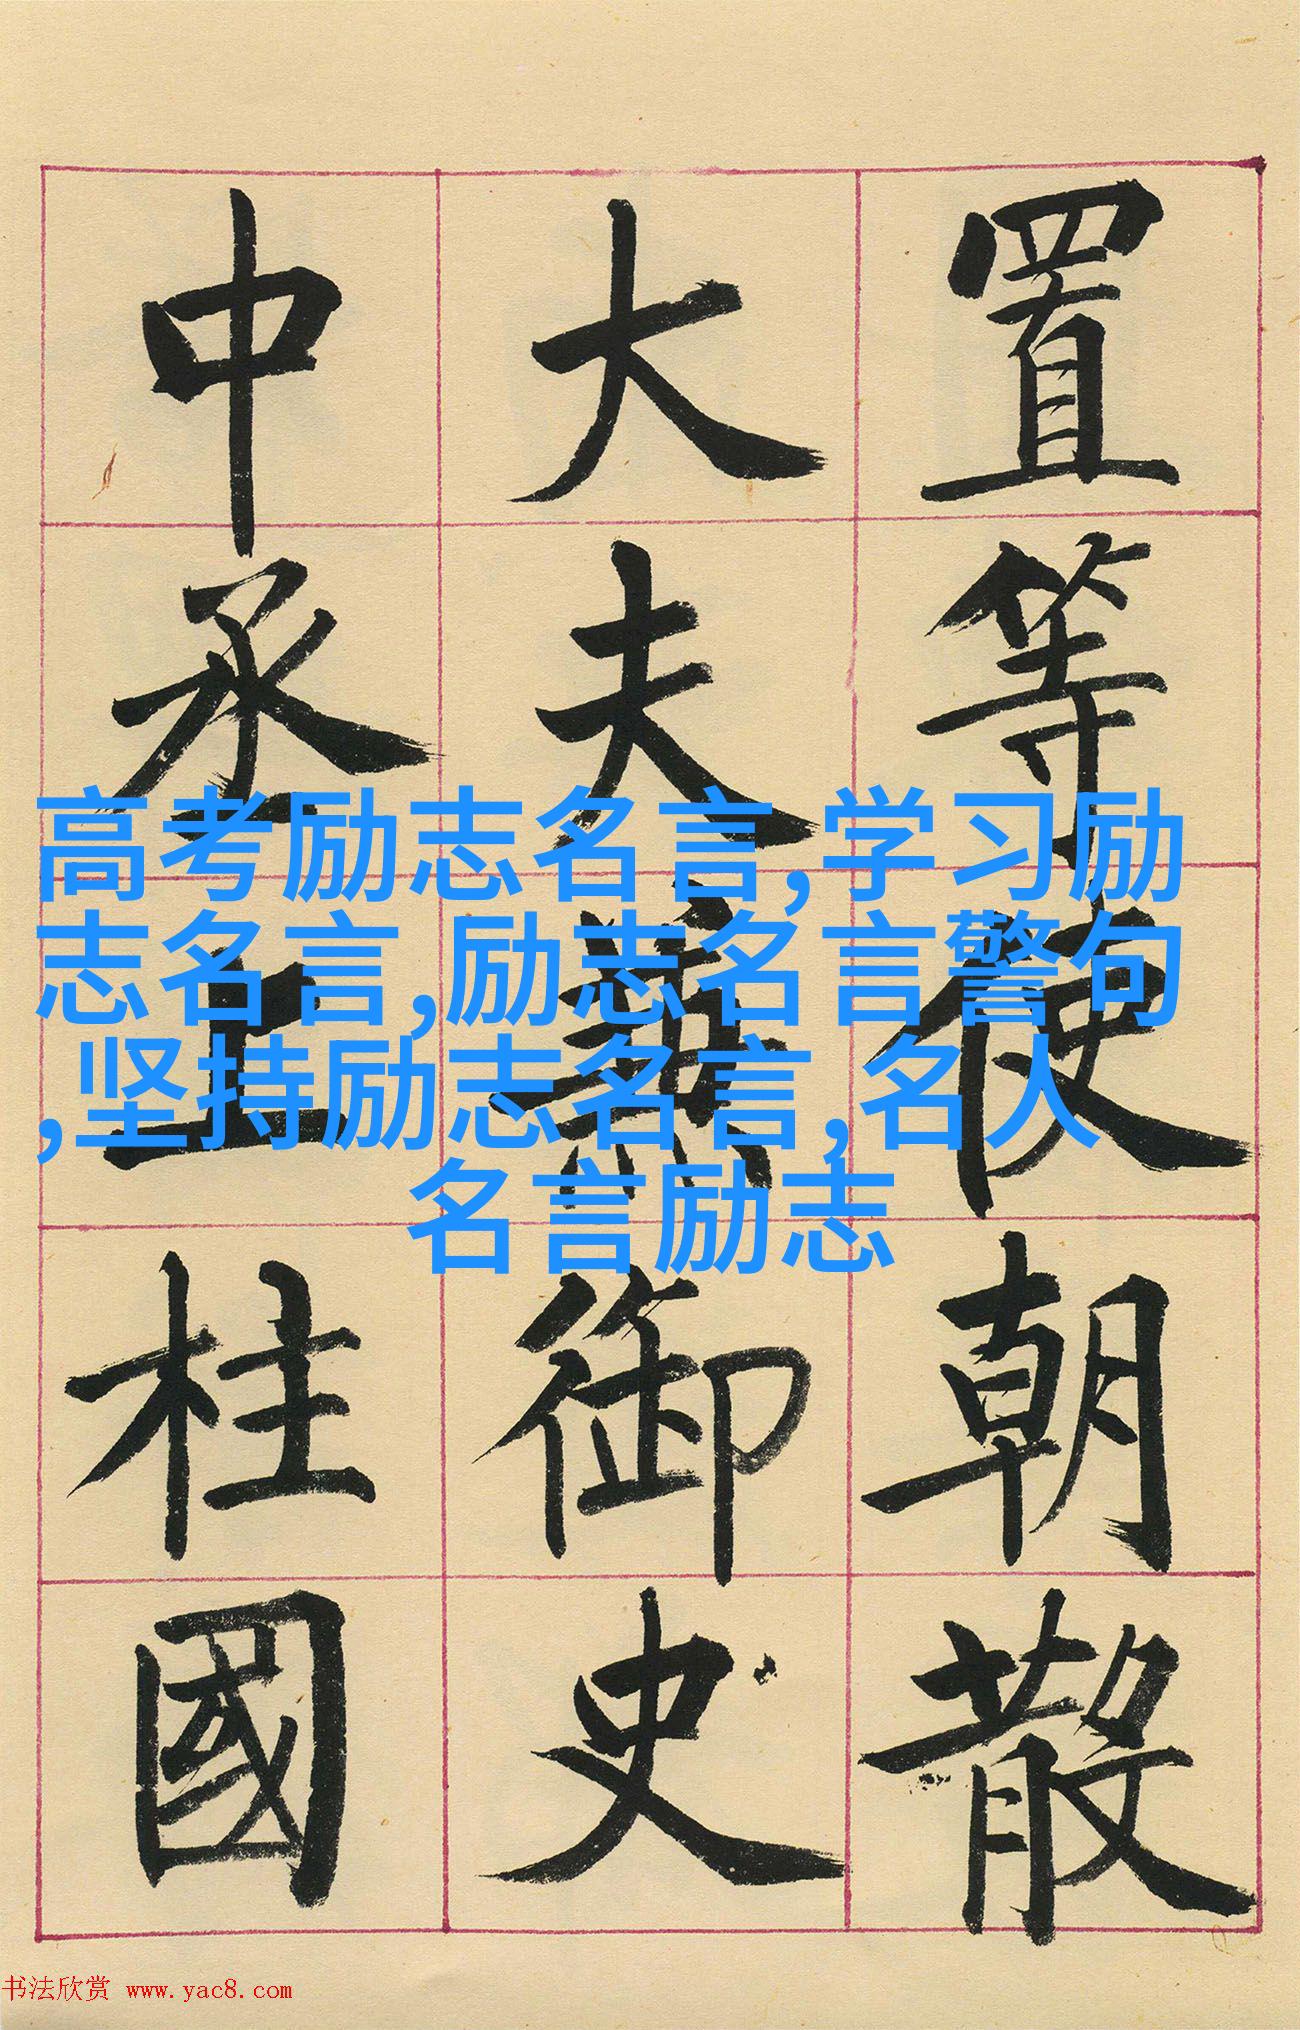 置等使朝散
大夫兼御史
中丞上柱國
高考励志名言,学习励
志名言,励志名言警句
,坚持励志名言,名人
名言励志
书法欣赏 www.yac8.com